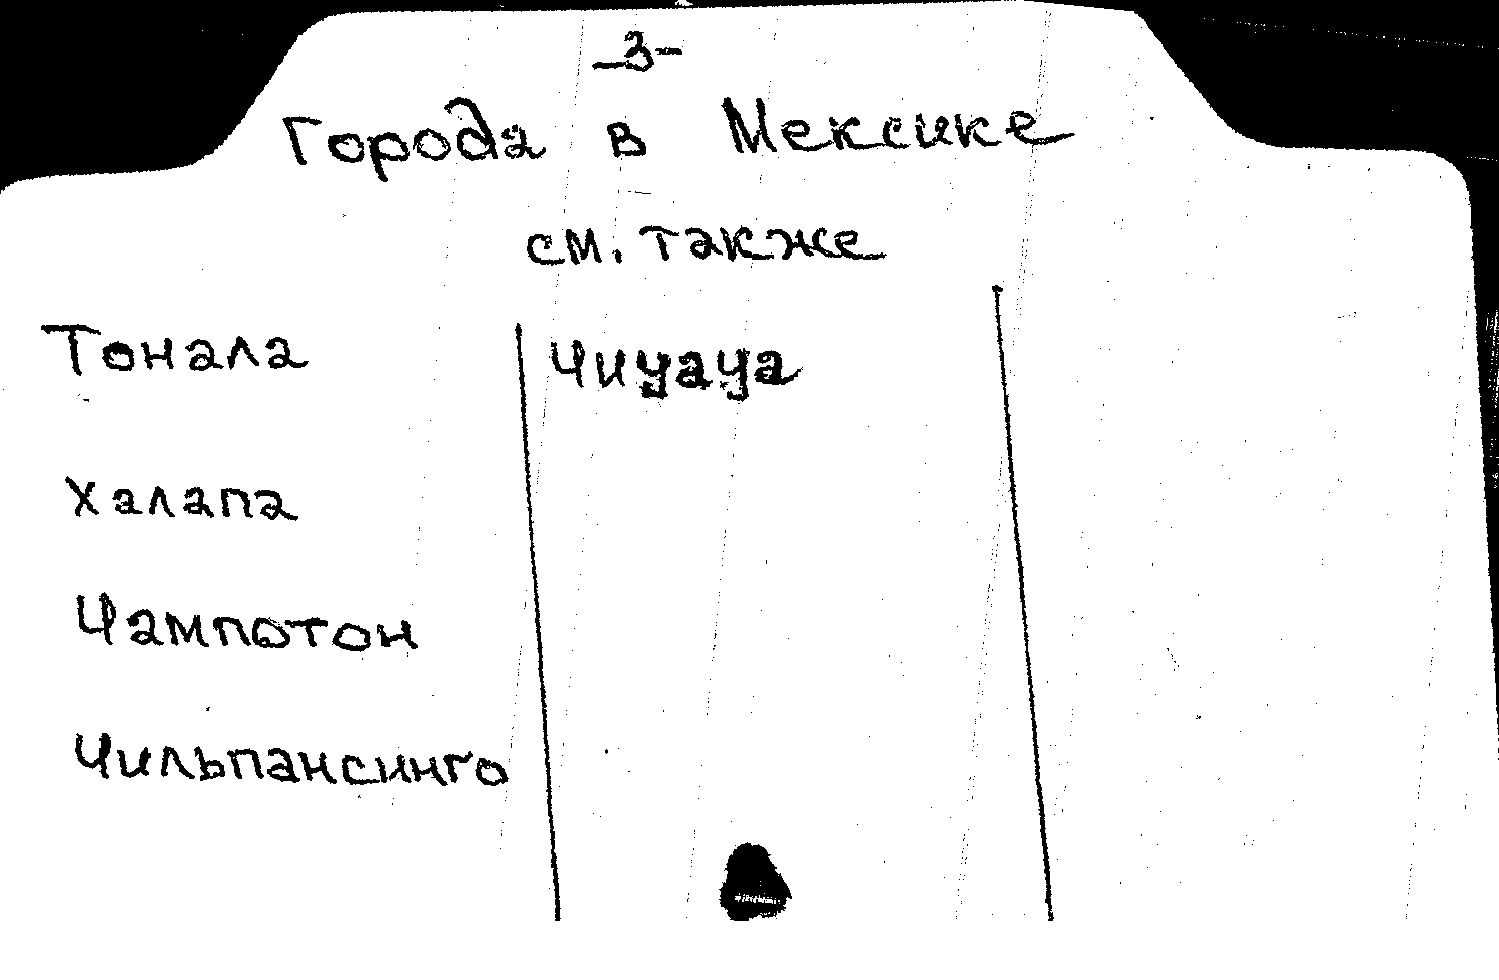 -3-
Города в Мексике
см. также
Тонала
Халапа
Чампотон
Чильпансинго
Чиуауа